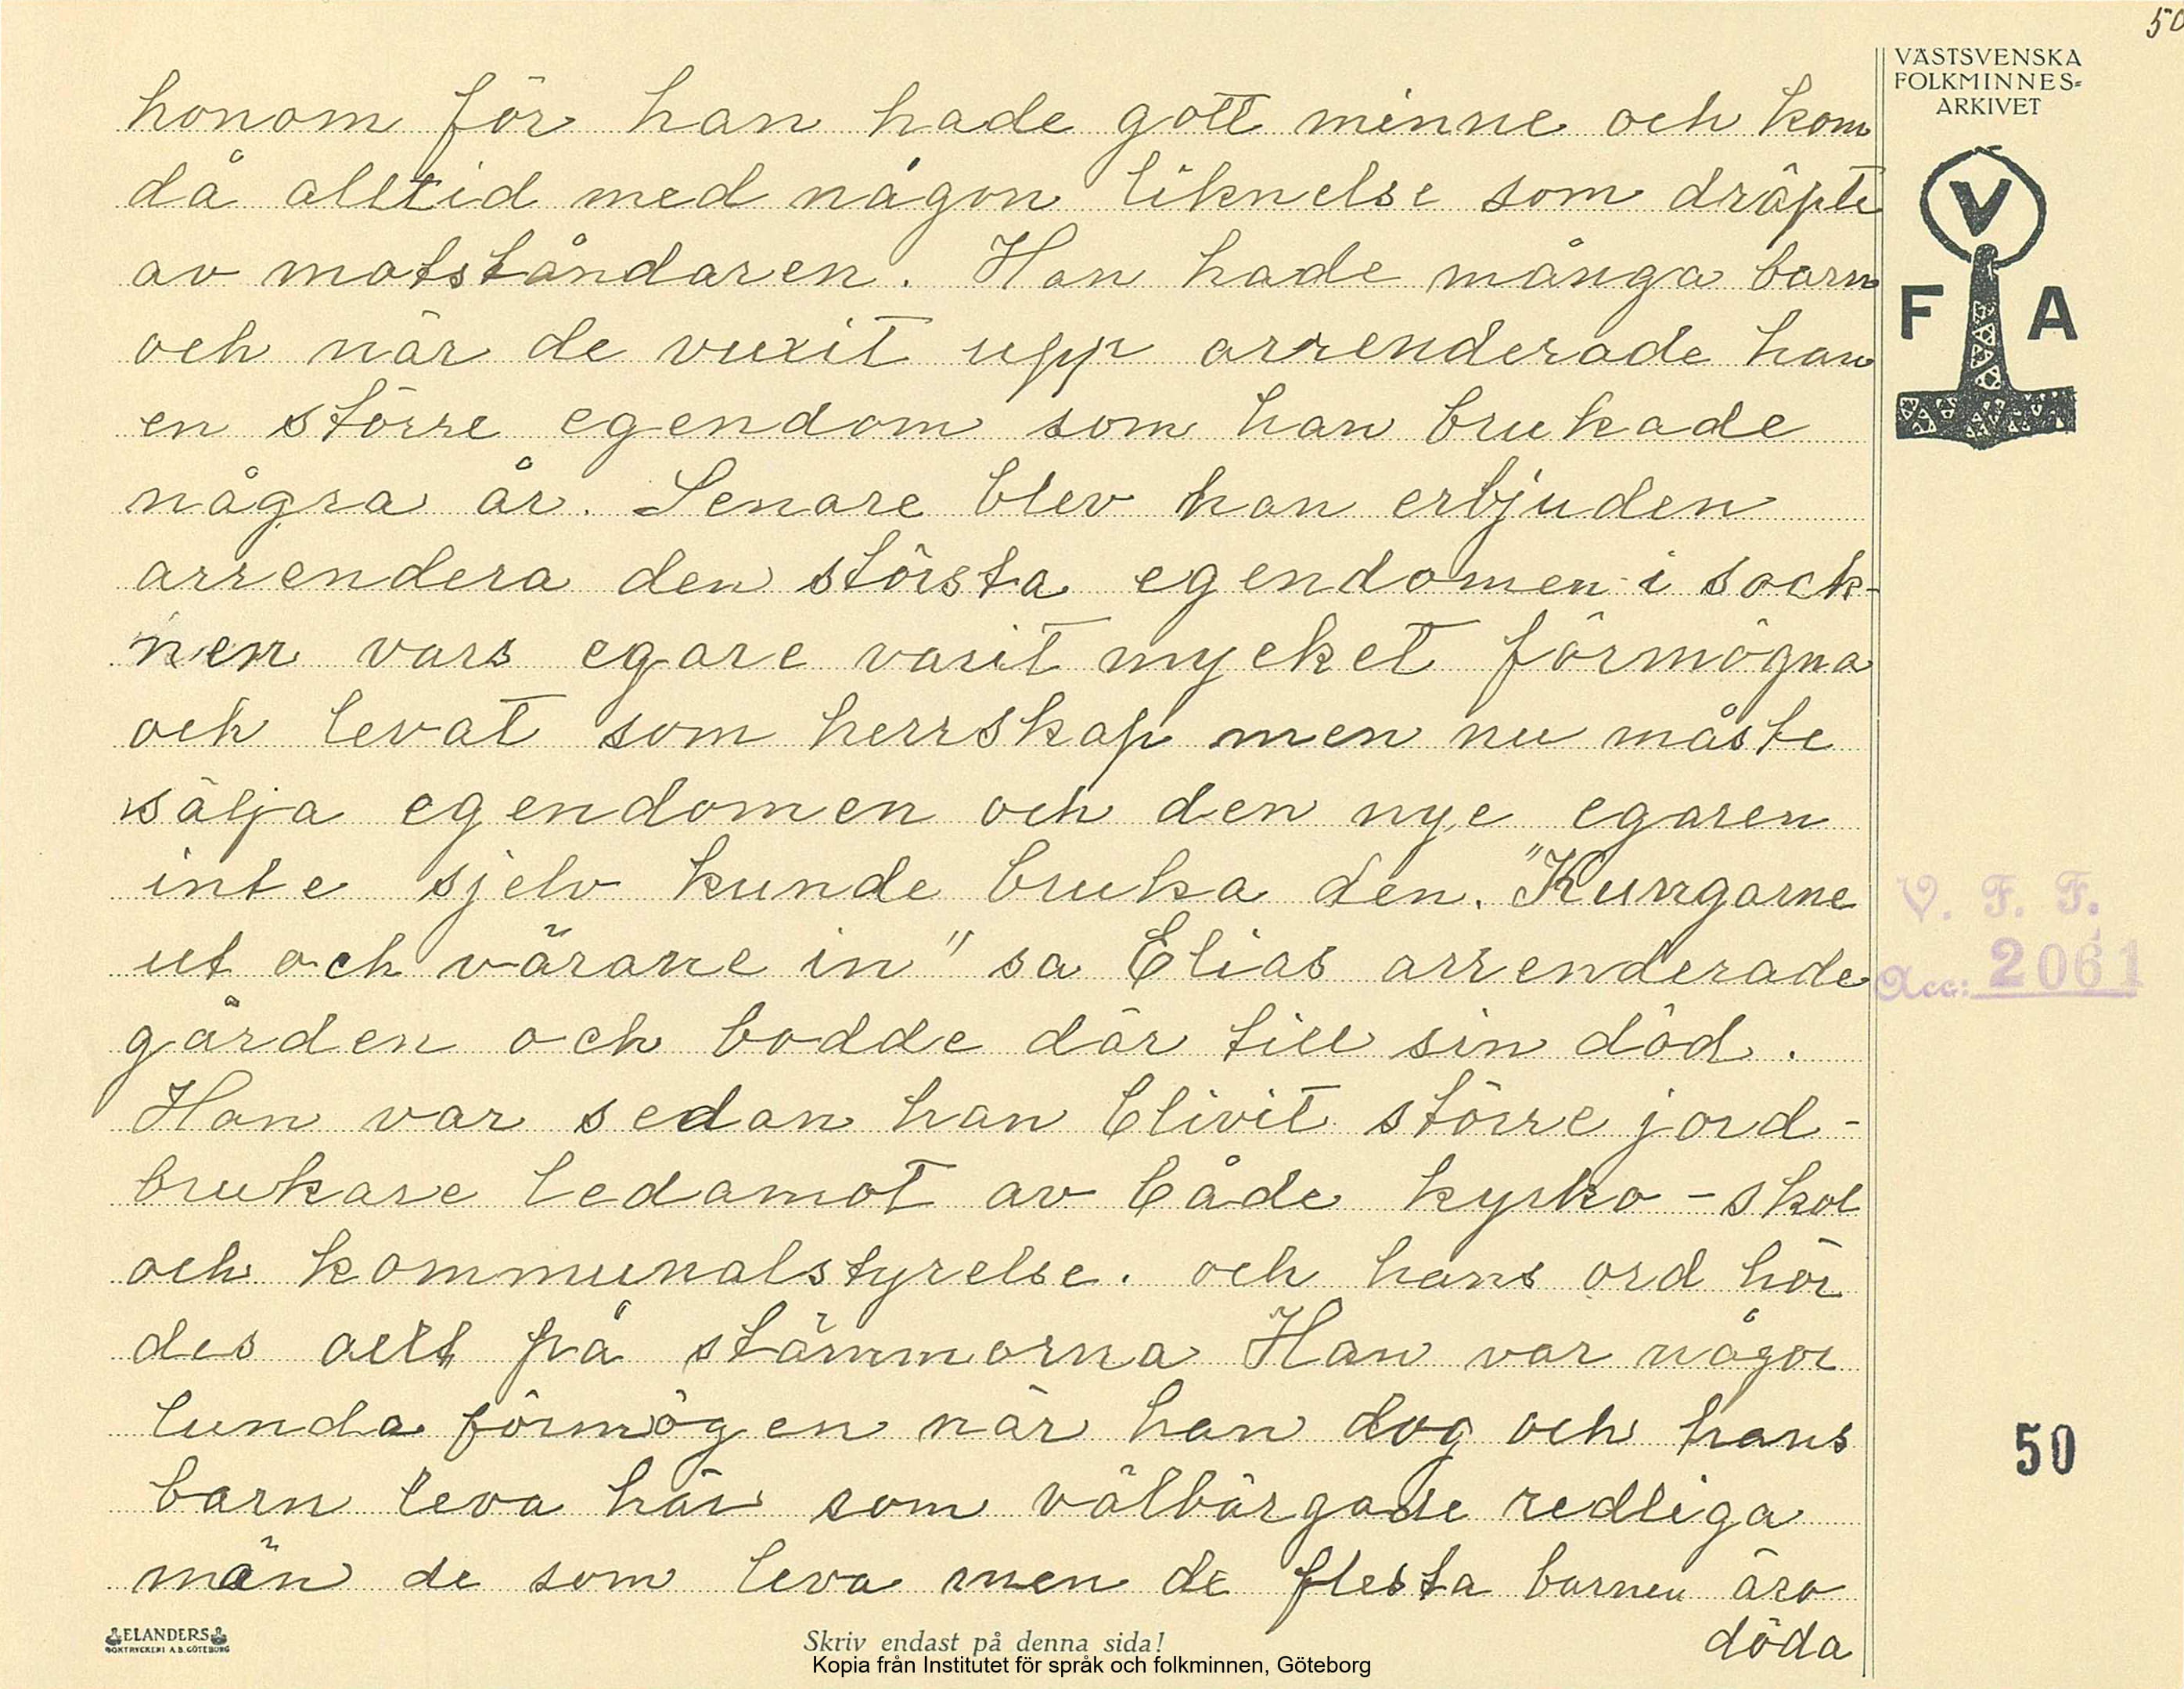 50
VÄSTSVENSKA
FOLKMINNES-
ARKIVET
V
F A
honom för han hade gott minne och kom
då alltid med någon liknelse som dräpte
av motståndaren. Han hade många barn
och när de vuxit upp arrenderade han
en större egendom som han brukade
några år. Senare blev han erbjuden
arrendera den största egendomen i sock-
nen vars egare varit mycket förmögna
och levat som herrskap men nu måste
sälja egendomen och den nye egaren
inte sjelv kunde bruka den. "Kungarne
ut och värarne in" sa Elias arrenderade
gården och bodde där till sin död.
Han var sedan han blivit större jord-
brukare ledamot av både kyrko - skol
och kommunalstyrelse. och hans ord hör
des allt på stämmorna Han var någor
lunda förmögen när han dog och hans
barn leva här som välbärgade redliga
män de som leva men de flesta barnen äro
döda
V. F. F.
Acc: 2061
50
ELANDERS
BOKTRYCKERI A.B. GÖTEBORG
Skriv endast på denna sida!
Kopia från Institutet för språk och folkminnen, Göteborg